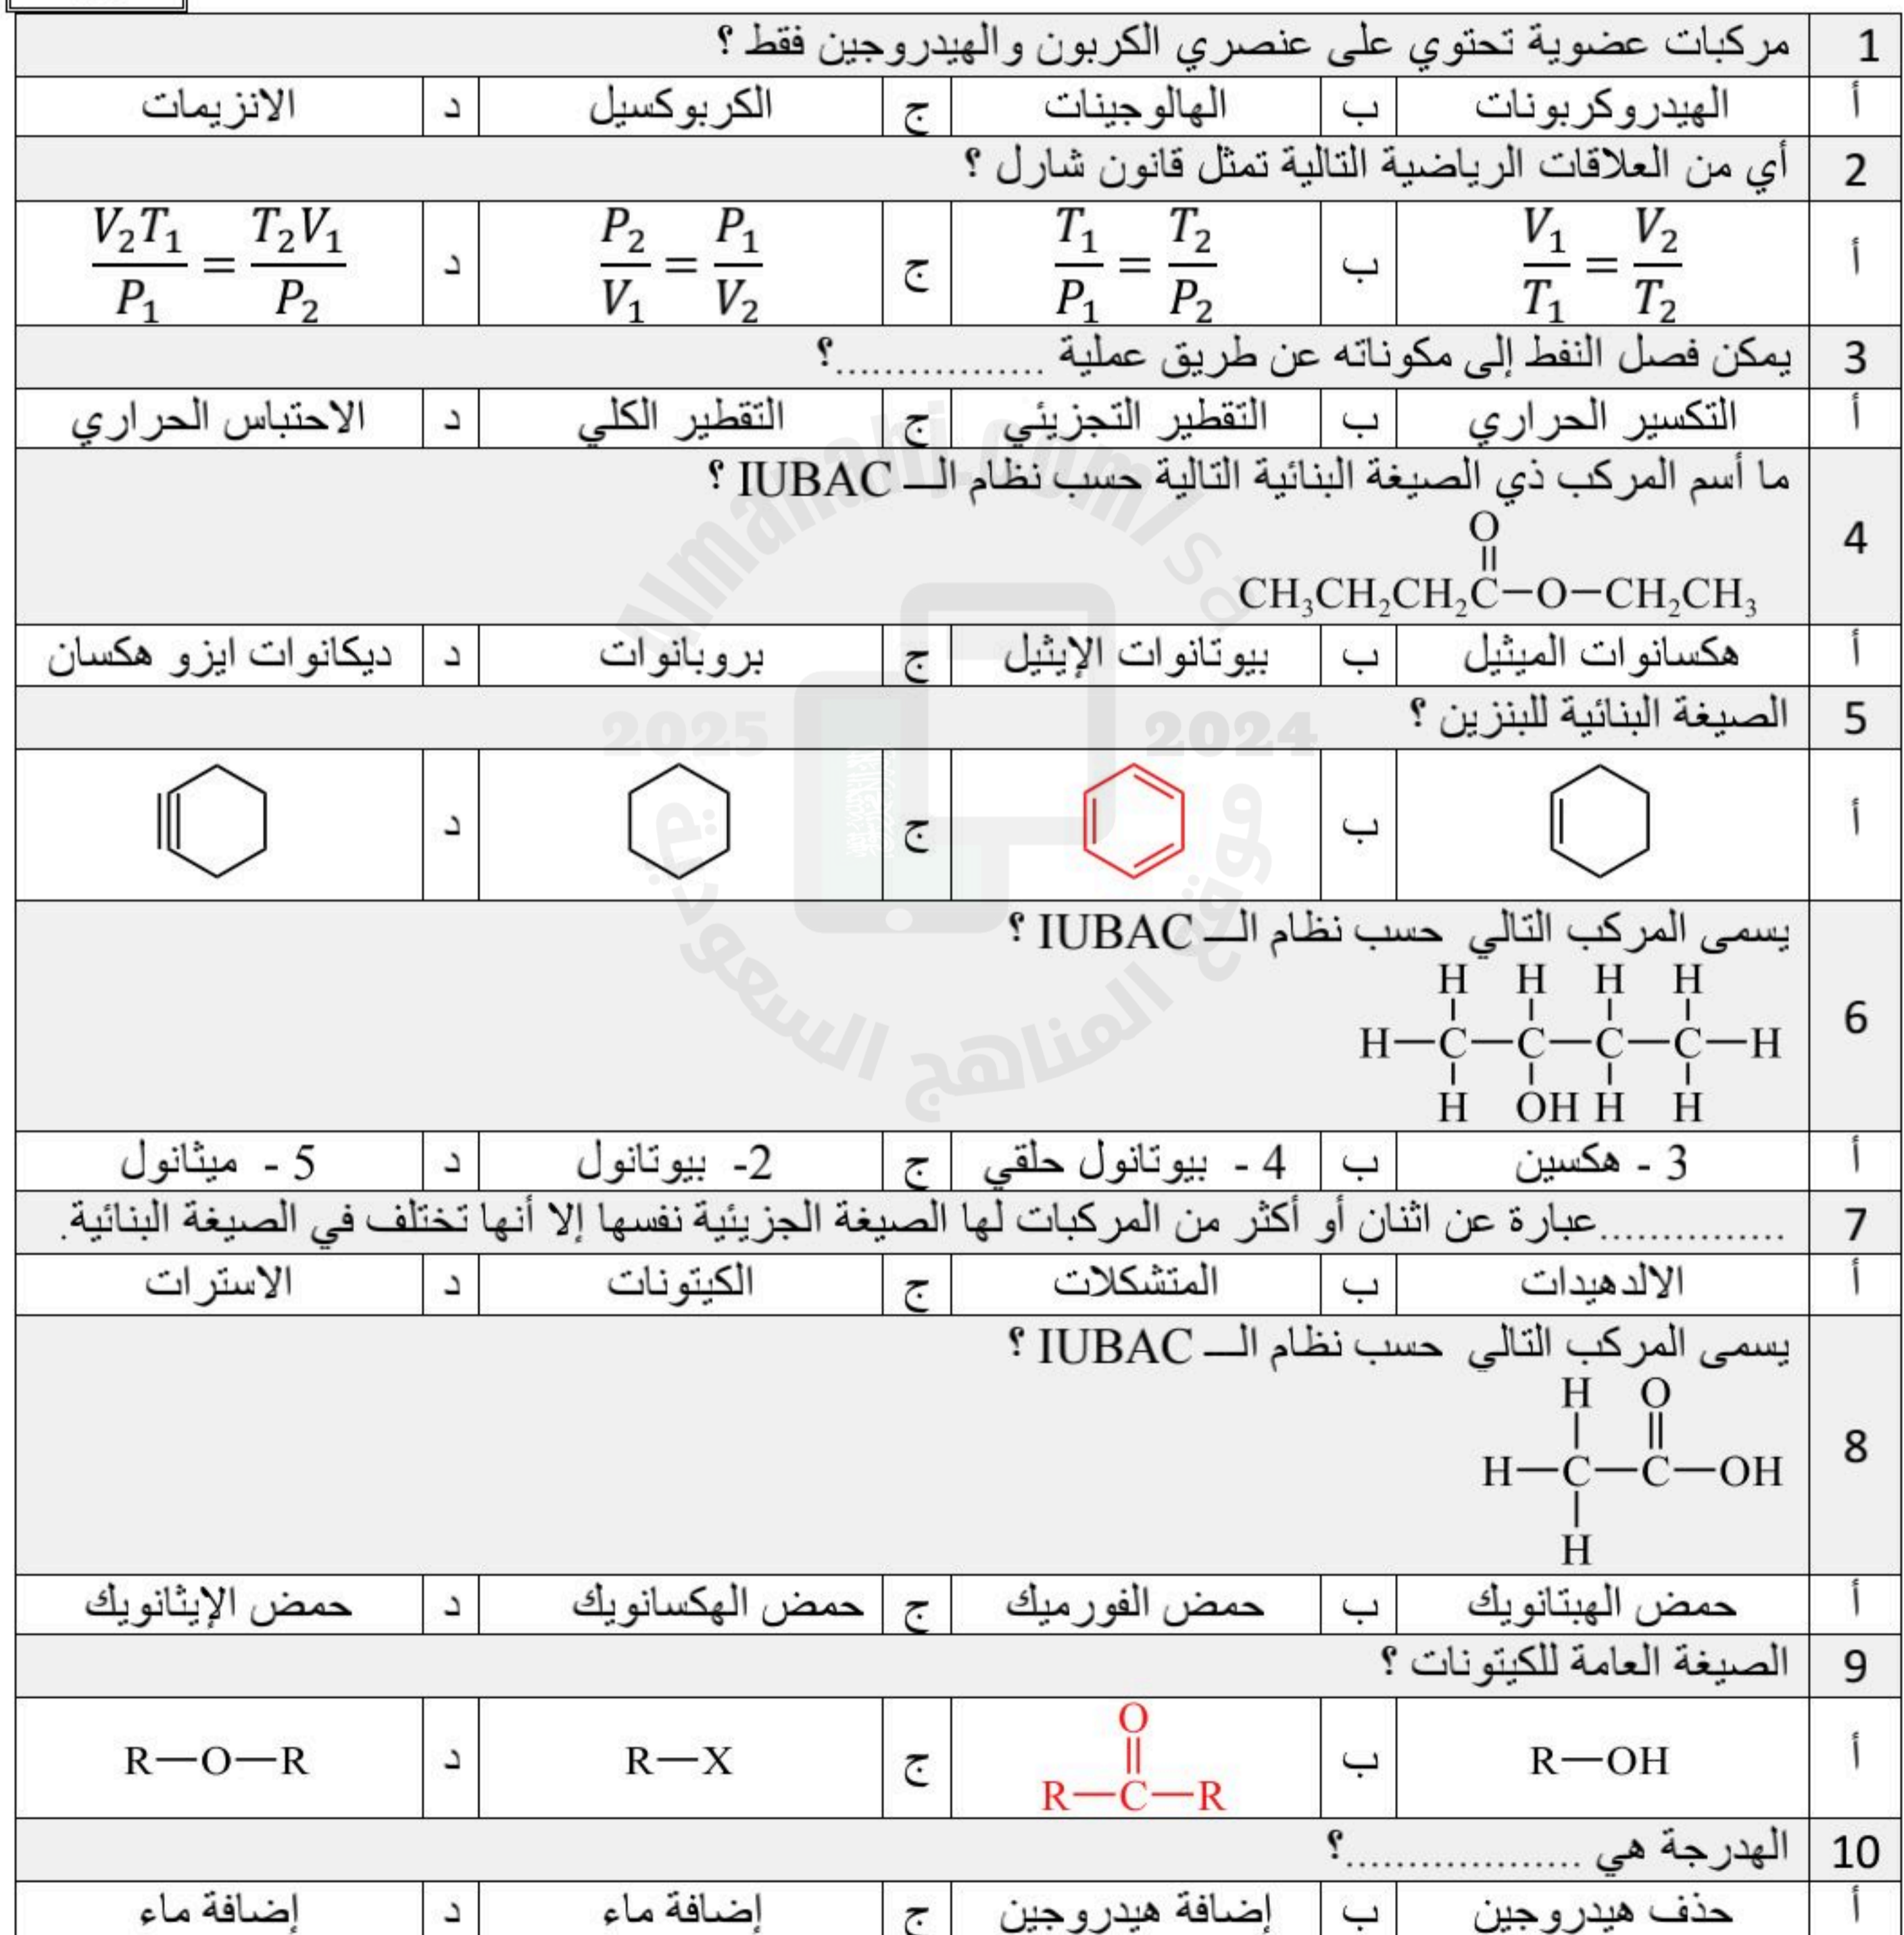 1 مركبات عضوية تحتوي على عنصري الكربون والهيدروجين فقط ؟
أ الهيدروكربونات ب الهالوجينات ج الكربوكسيل د الانزيمات
2 أي من العلاقات الرياضية التالية تمثل قانون شارل ؟
أ V₁/T₁ = V₂/T₂ ب T₁/P₁ = T₂/P₂ ج P₂/V₁ = P₁/V₂ د V₂T₁/P₁ = T₂V₁/P₂
3 يمكن فصل النفط إلى مكوناته عن طريق عملية .................؟
أ التكسير الحراري ب التقطير التجزيئي ج التقطير الكلي د الاحتباس الحراري
4 ما أسم المركب ذي الصيغة البنائية التالية حسب نظام الـــ IUBAC ؟
O
CH₃CH₂CH₂C—O—CH₂CH₃
أ هكسانوات الميثيل ب بيوتانوات الإيثيل ج بروبانوات د ديكانوات ايزو هكسان
5 الصيغة البنائية للبنزين ؟
أ ب ج د
6 يسمى المركب التالي حسب نظام الـــ IUBAC ؟
H H H H
H—C—C—C—C—H
H OH H H
أ 3 - هكسين ب 4 - بيوتانول حلقي ج 2- بيوتانول د 5 - ميثانول
7 ...............عبارة عن اثنان أو أكثر من المركبات لها الصيغة الجزيئية نفسها إلا أنها تختلف في الصيغة البنائية.
أ الالدهيدات ب المتشكلات ج الكيتونات د الاسترات
8 يسمى المركب التالي حسب نظام الـــ IUBAC ؟
H O
H—C—C—OH
H
أ حمض الهبتانويك ب حمض الفورميك ج حمض الهكسانويك د حمض الإيثانويك
9 الصيغة العامة للكيتونات ؟
O
أ R—OH ب R—C—R ج R—X د R—O—R
10 الهدرجة هي ...................؟
أ حذف هيدروجين ب إضافة هيدروجين ج إضافة ماء د إضافة ماء
Almanahj.com/sa
2025 2024
موقع المناهج السعودية